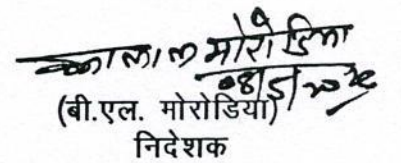 लाल मोरोडिया
(बी.एल. मोरोडिया)
निदेशक